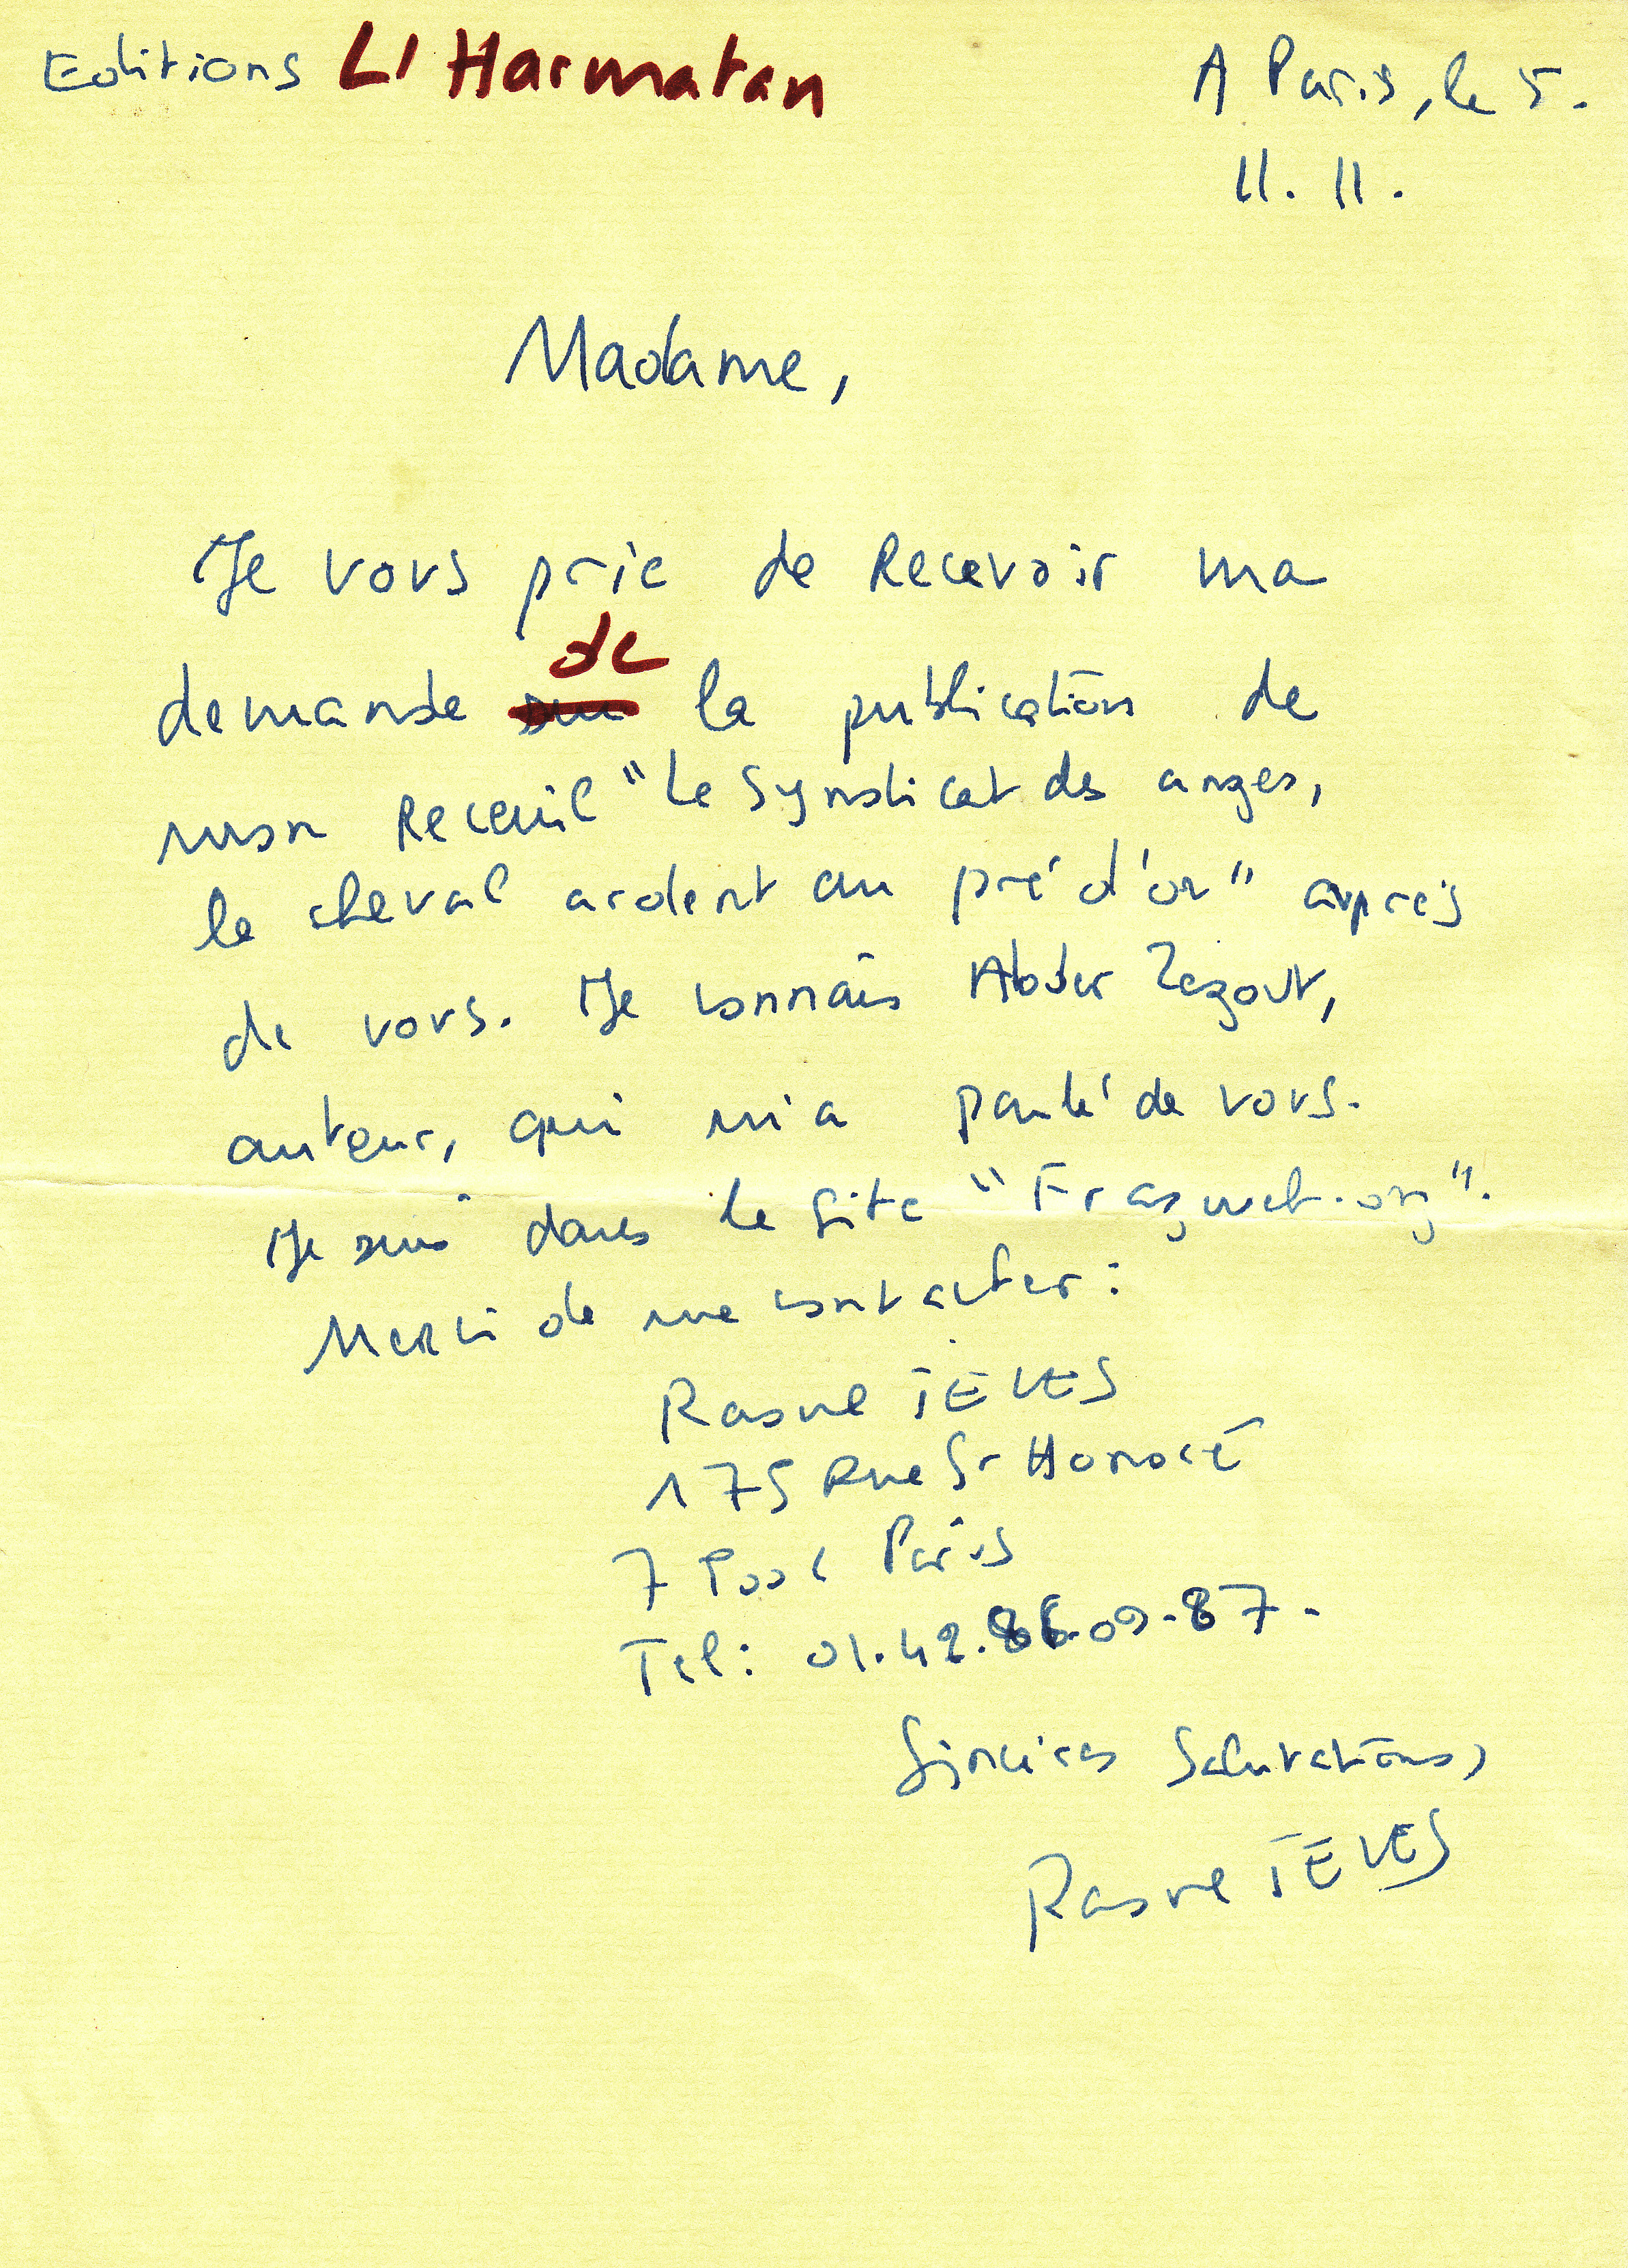 Editions L'Harmatan
A Paris, le 5.
11. 11.
Madame,
Je vous prie de Recevoir ma
de
demande sur la publication de
mon Receuil "Le Syndicat des anges,
le cheval ardent au pré d'or" auprès
de vous. Je connais Abder Zegout,
auteur, qui m'a parlé de vous.
Je suis dans le site "Fragment.org".
Merci de me contacter:
TEVES
175 Rue St Honoré
Paris
Tel: 01.42.86.09.87.
Sincères Salutations,
TEVES